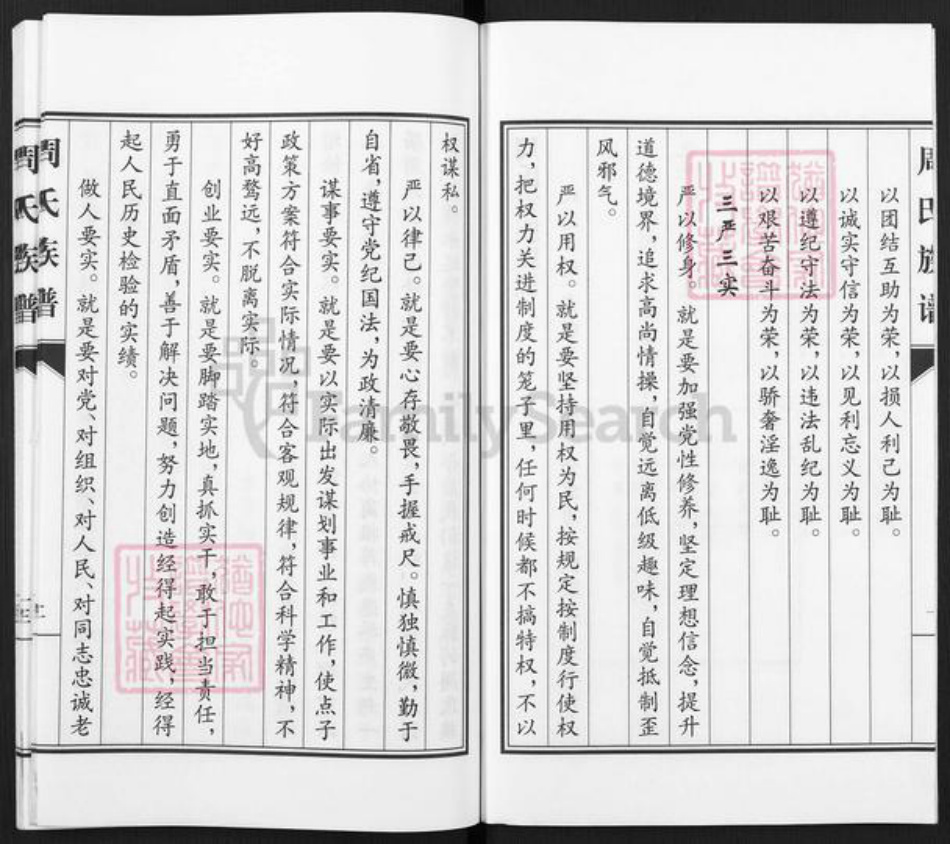 周氏族谱
以团结互助为荣，以损人利己为耻。
以诚实守信为荣，以见利忘义为耻。
以遵纪守法为荣，以违法乱纪为耻。
以艰苦奋斗为荣，以骄奢淫逸为耻。
三严三实
严以修身。就是要加强党性修养，坚定理想信念，提升
道德境界，追求高尚情操，自觉远离低级趣味，自觉抵制歪
风邪气。
严以用权。就是要坚持用权为民，按规定按制度行使权
力，把权力关进制度的笼子里，任何时候都不搞特权，不以
权谋私。
严以律己。就是要心存敬畏，手握戒尺。慎独慎微，勤于
自省，遵守党纪国法，为政清廉。
谋事要实。就是要以实际出发谋划事业和工作，使点子
政策方案符合实际情况，符合客观规律，符合科学精神，不
好高骛远，不脱离实际。
创业要实。就是要脚踏实地，真抓实干，敢于担当责任，
勇于直面矛盾，善于解决问题，努力创造经得起实践，经得
起人民历史检验的实绩。
做人要实。就是要对党、对组织、对人民、对同志忠诚老
周氏族谱
周氏族谱
FamilySearch